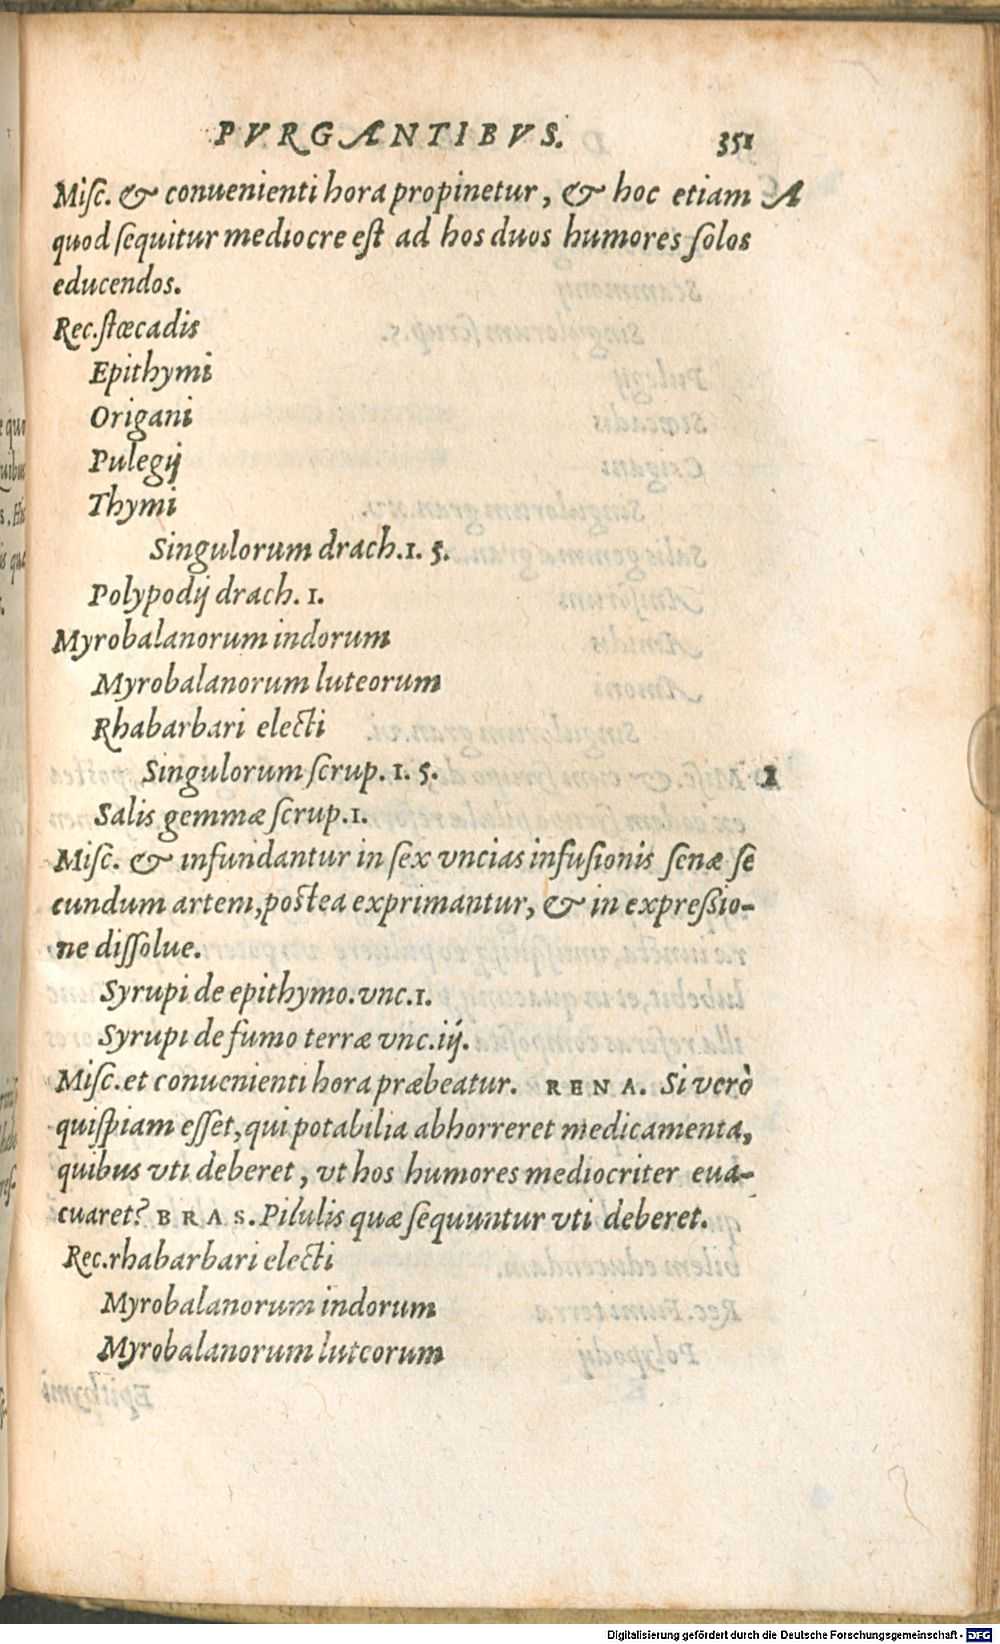 PVRGANTIBVS. 351
Misc. & conuenienti hora propinetur, & hoc etiam A
quod sequitur mediocre est ad hos duos humores solos
educendos.
Rec. stœcadis
Epithymi
Origani
Pulegij
Thymi
Singulorum drach. 1. 5.
Polypodij drach. 1.
Myrobalanorum indorum
Myrobalanorum luteorum
Rhabarbari electi
Singulorum scrup. 1. 5.
Salis gemmæ scrup. 1.
Misc. & infundantur in sex vncias infusionis senæ se
cundum artem, postea exprimantur, & in expreßio-
ne dissolue.
Syrupi de epithymo. vnc. 1.
Syrupi de fumo terræ vnc. iij.
Misc. et conuenienti hora præbeatur. RENA. Si verò
quispiam esset, qui potabilia abhorreret medicamenta,
quibus vti deberet, vt hos humores mediocriter eua-
cuaret? BRAS. Pilulis quæ sequuntur vti deberet.
Rec. rhabarbari electi
Myrobalanorum indorum
Myrobalanorum luteorum
Digitalisierung gefördert durch die Deutsche Forschungsgemeinschaft - DFG